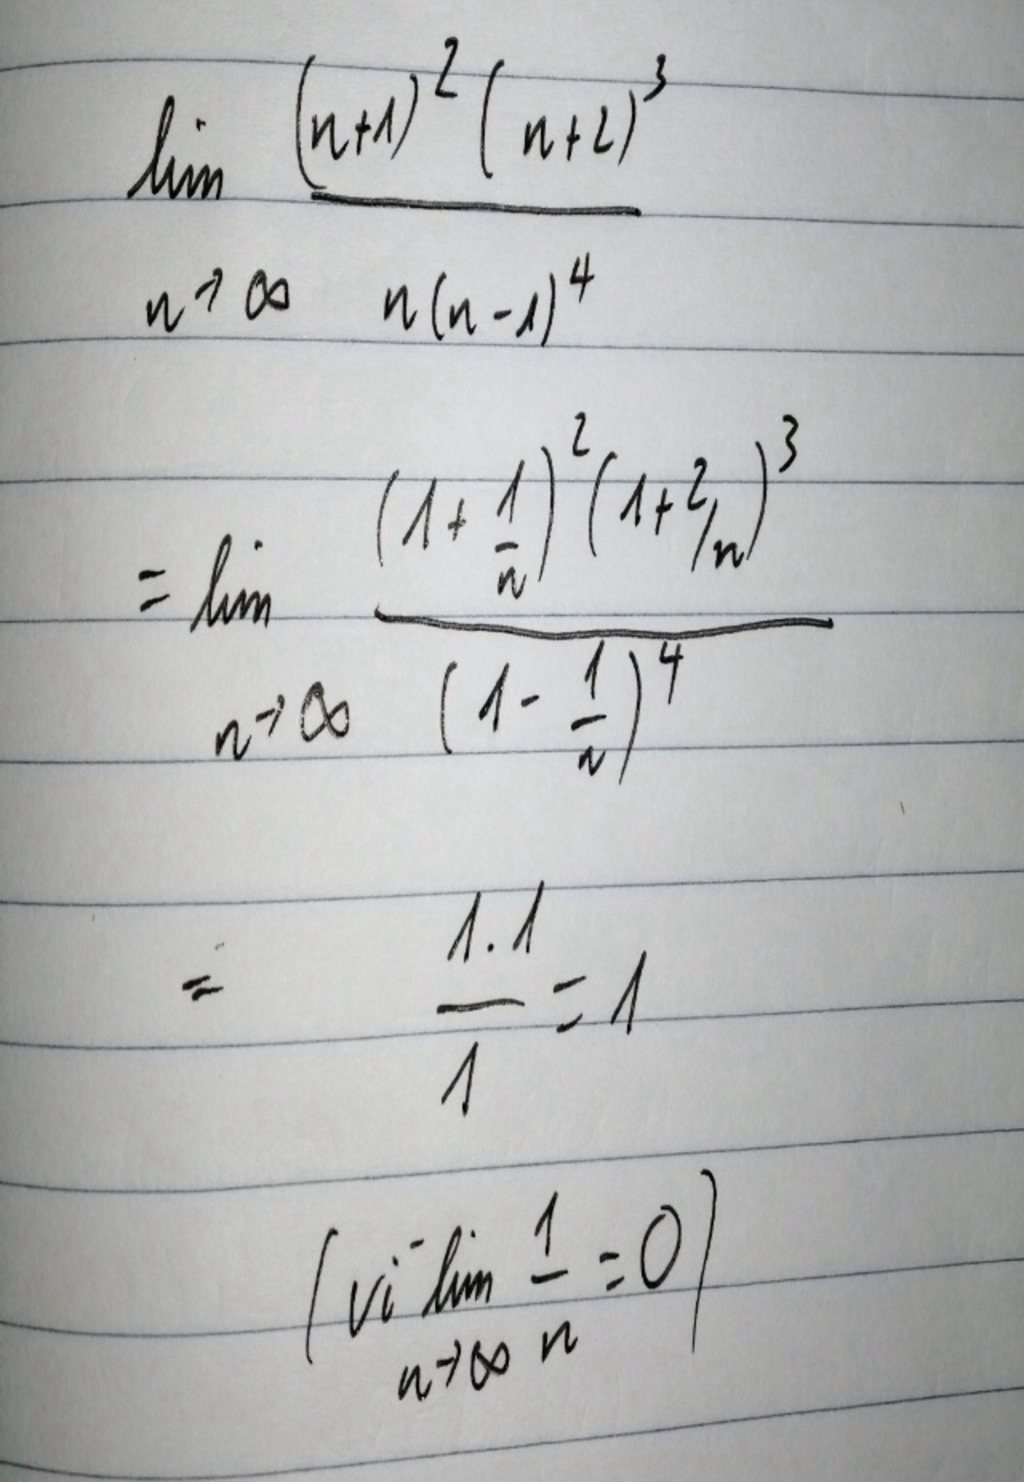 lim (n+1)² (n+2)³
n→∞ n(n-1)⁴
= lim (1+1/n)² (1+2/n)³
n→∞ (1-1/n)⁴
= 1.1/1 = 1
(vì lim 1/n = 0)
n→∞